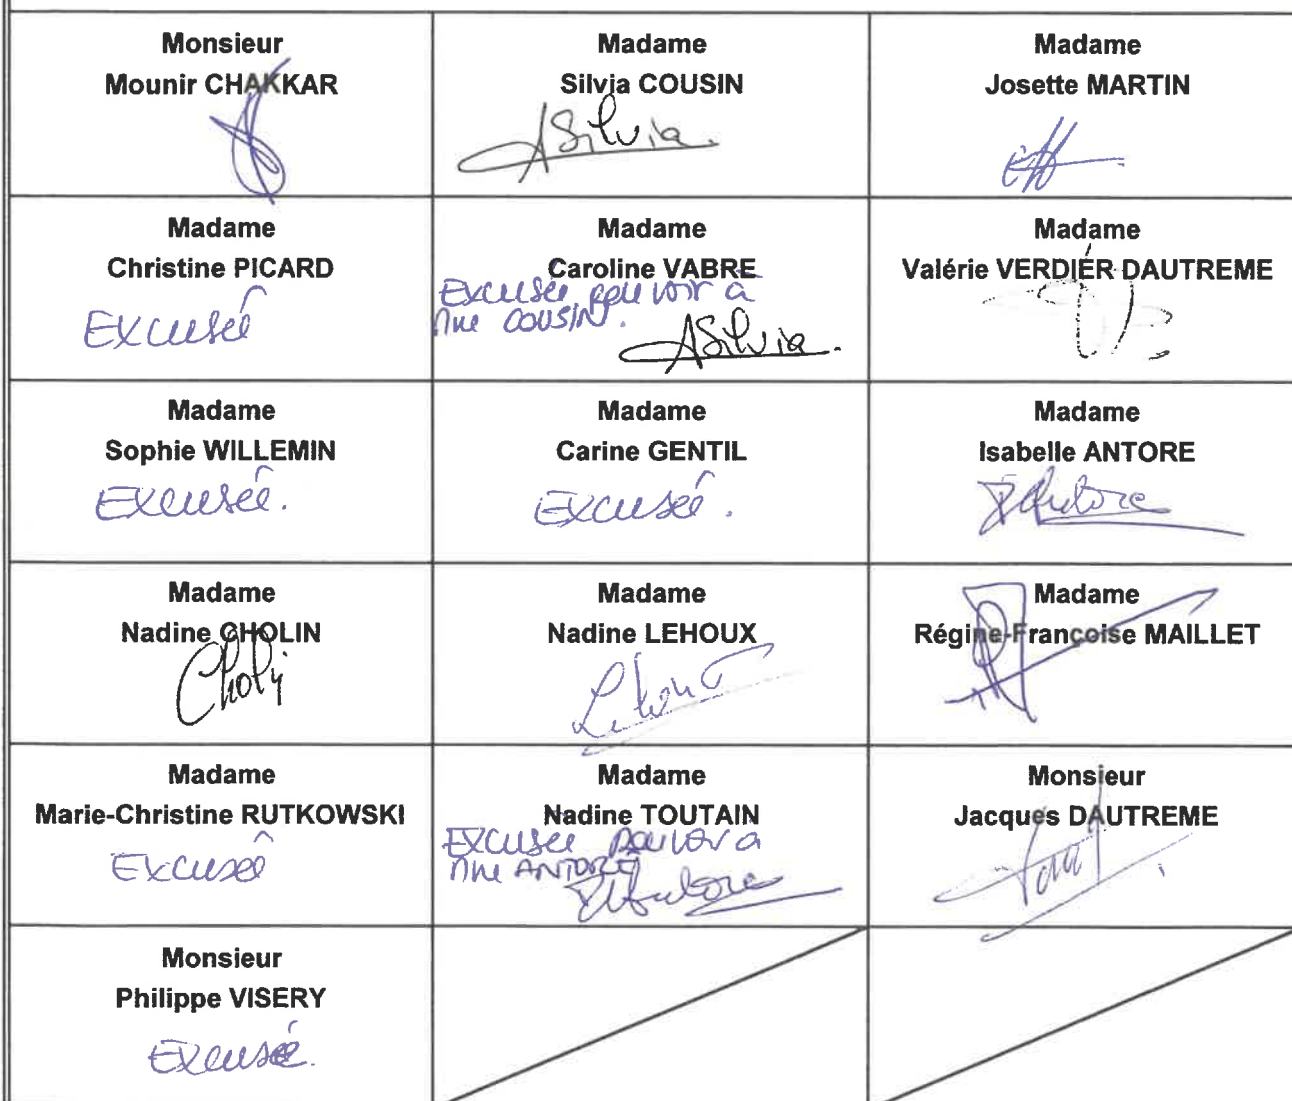 Monsieur
Mounir CHAKKAR
Madame
Silvia COUSIN
Silvia
Madame
Josette MARTIN
Madame
Christine PICARD
Excusée
Madame
Caroline VABRE
Excusée pouvoir à
Mme COUSIN.
Silvia
Madame
Valérie VERDIER DAUTREME
Madame
Sophie WILLEMIN
Excusée.
Madame
Carine GENTIL
Excusée.
Madame
Isabelle ANTORE
Antore
Madame
Nadine CHOLIN
Choli
Madame
Nadine LEHOUX
Lehoux
Madame
Régine-Françoise MAILLET
Madame
Marie-Christine RUTKOWSKI
Excusée
Madame
Nadine TOUTAIN
Excusée pouvoir à
Mme ANTORE
Antore
Monsieur
Jacques DAUTREME
Monsieur
Philippe VISERY
Excusée.